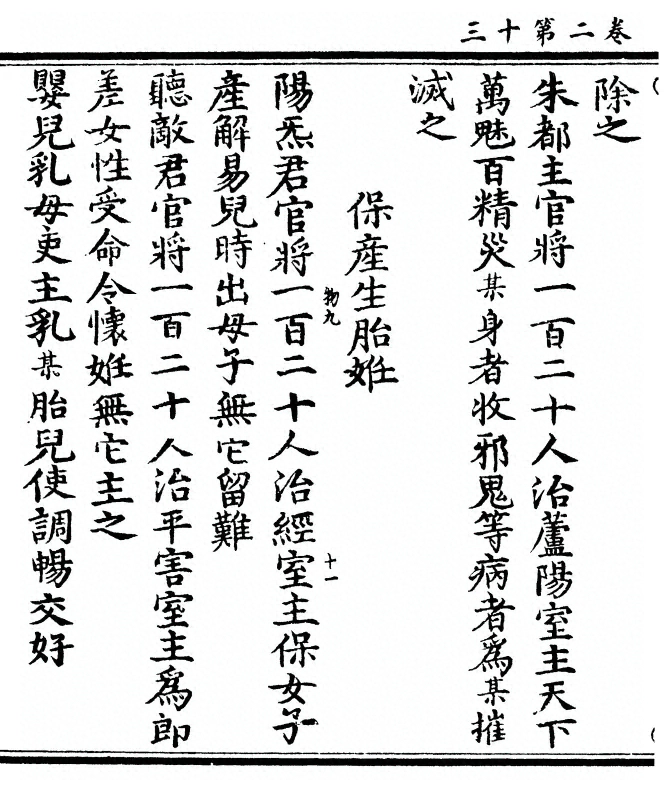 三十第二卷
除之
朱都主官將一百二十人治蘆陽室主天下
萬魅百精災某身者收邪鬼等病者爲某摧
滅之
保產生胎姙
陽炁君官將一百二十人治經室主保女子
物九
十一
產解易兒時出母子無它留難
聽敵君官將一百二十人治平害室主爲卽
差女性受命令懷姙無它主之
嬰兒乳母吏主乳某胎兒使調暢交好